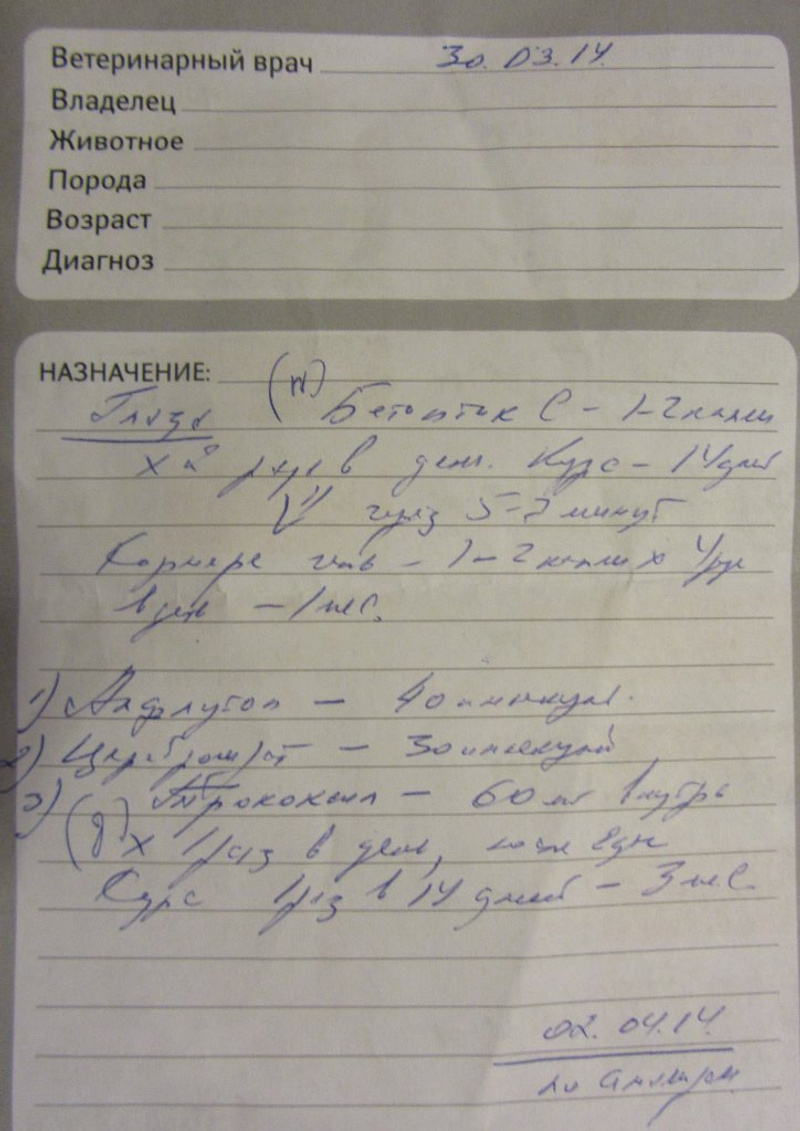 Ветеринарный врач 30.03.14.
Владелец
Животное
Порода
Возраст
Диагноз
НАЗНАЧЕНИЕ:
Глаза Бетоптик С - 1-2 капли
х 2 раза в день. Курс - 14 дней
через 5-7 минут
Корнере гель - 1-2 капли х 4 раза
в день - 1 мес.
1) Алфлутоп - 40 инъекций.
2) - 30 инъекций
3) Трококсил - 60 мг внутрь
х 1 раз в день, после еды
Курс 1 раз в 14 дней - 3 мес.
02.04.14.
по